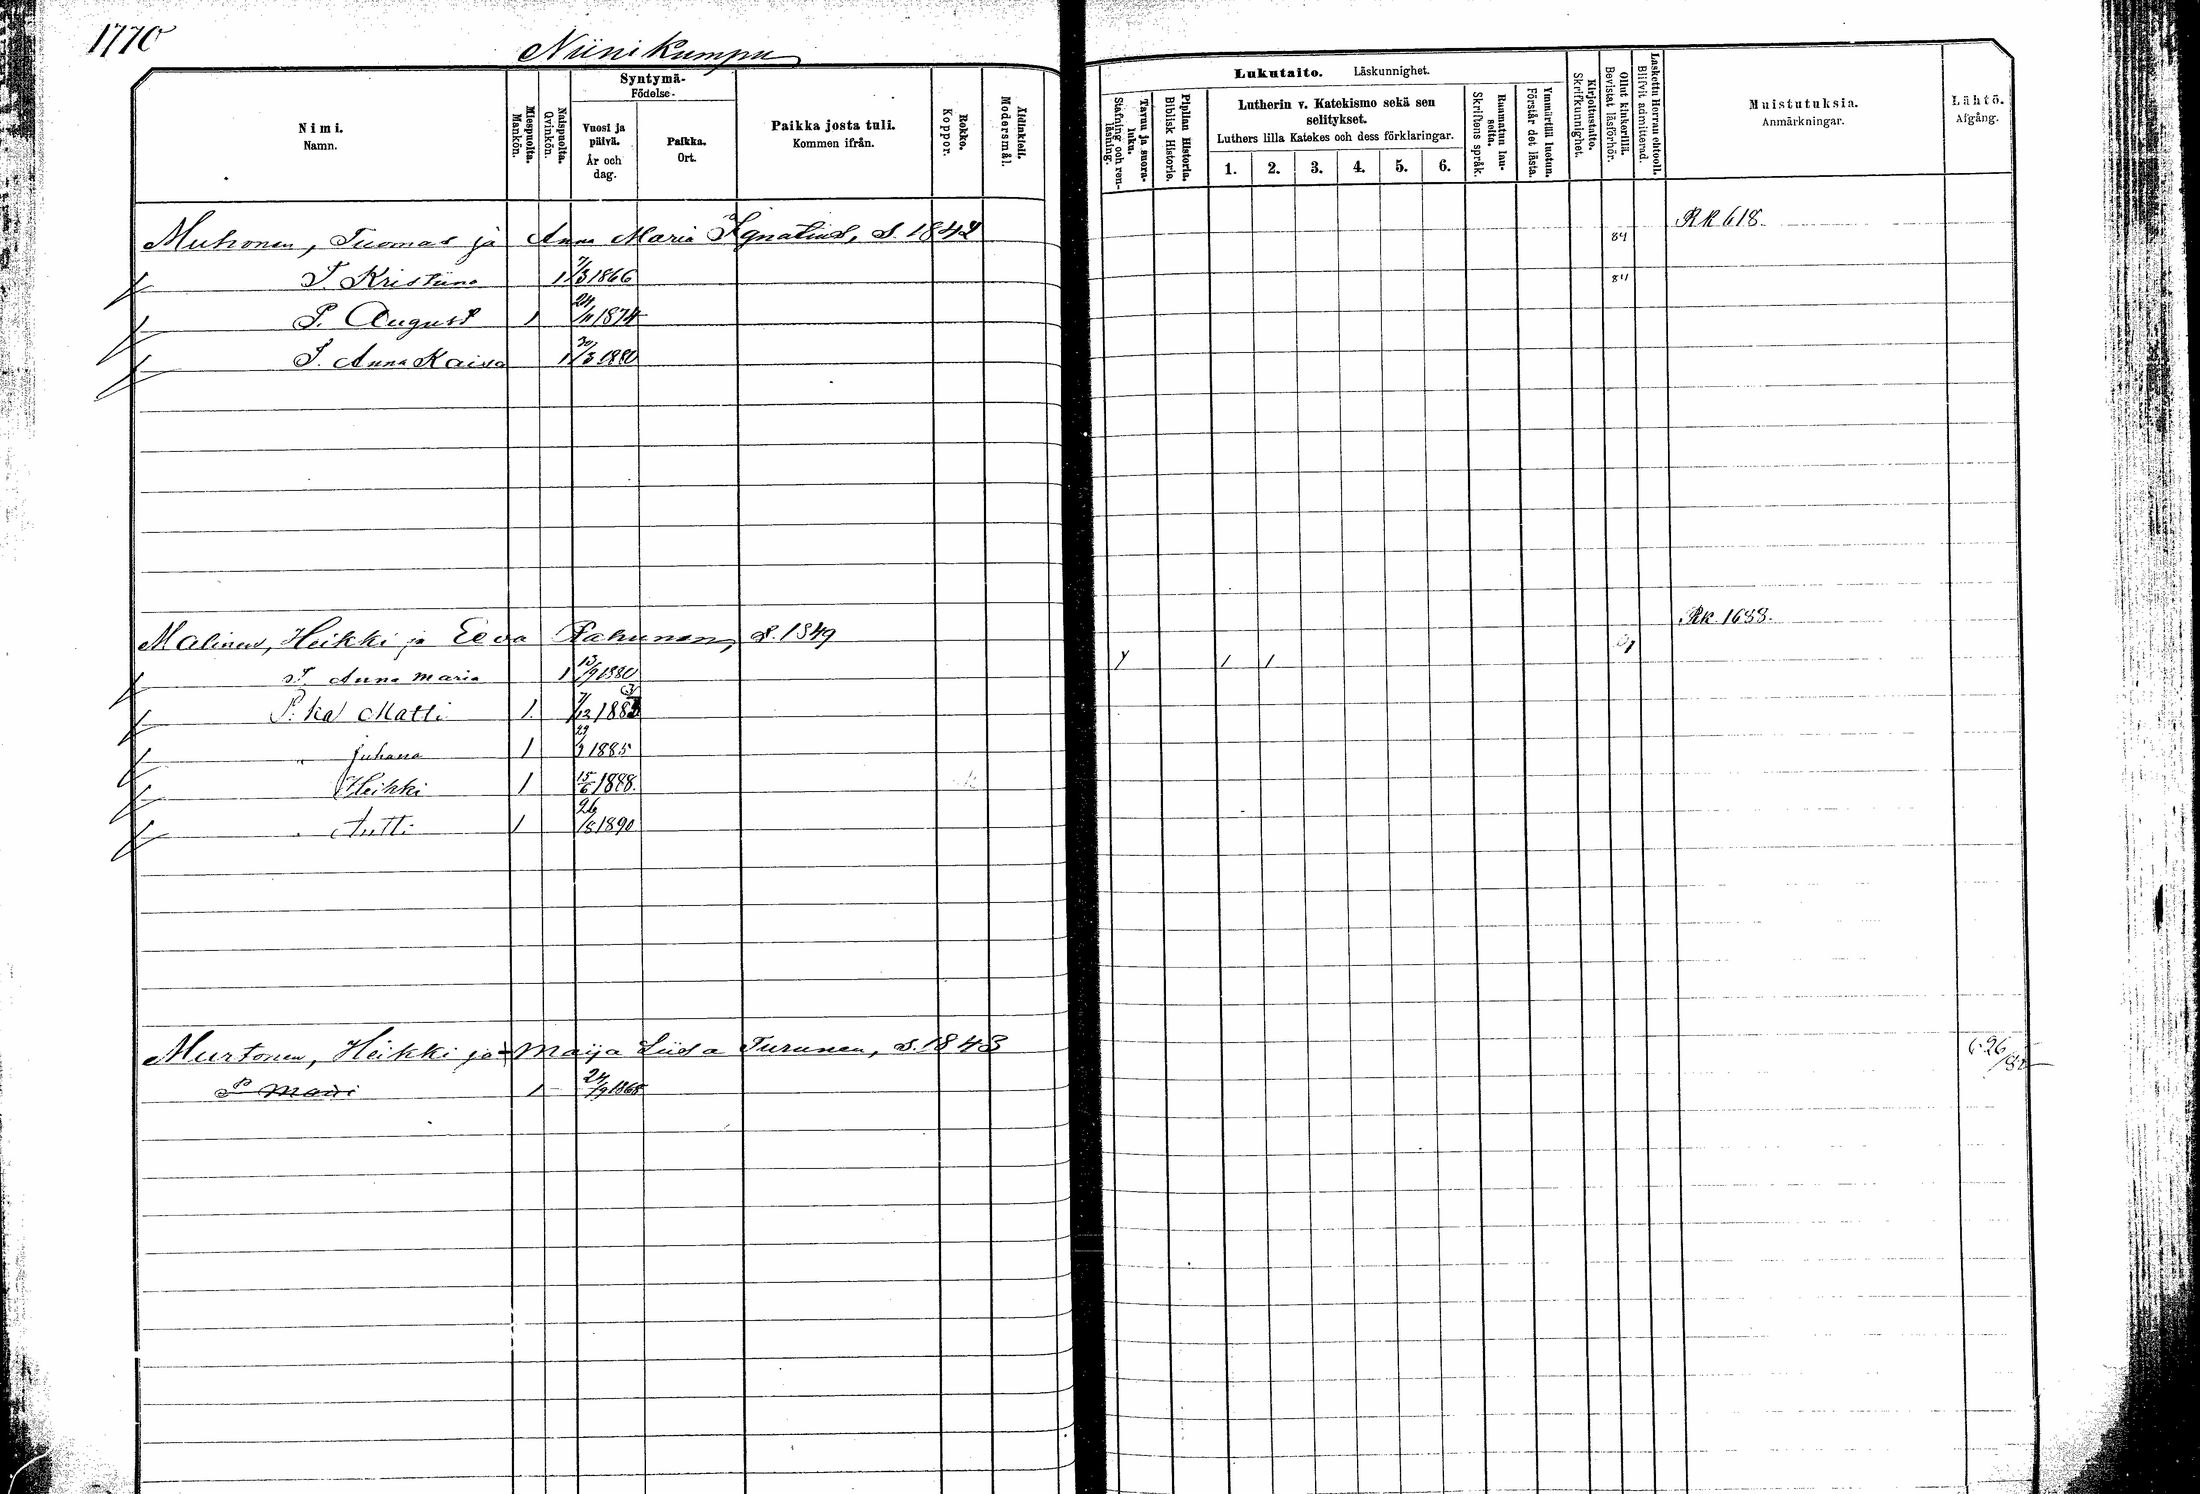 1770
Niinikumpu
Nimi.
Namn.
Miespuolta.
Mankön.
Naispuolta.
Qvinkön.
Syntymä-
Födelse-
Vuosi ja päivä.
År och dag.
Paikka.
Ort.
Paikka josta tuli.
Kommen ifrån.
Rokko.
Koppor.
Äidinkieli.
Modersmål.
Lukutaito. Läskunnighet.
Tavuu ja suora-luku.
Stafning och ren-läsning.
Piplian Historia.
Biblisk Historie.
Lutherin v. Katekismo sekä sen selitykset.
Luthers lilla Katekes och dess förklaringar.
1. 2. 3. 4. 5. 6.
Raamatun lau-seita.
Skriftens språk.
Ymmärtää luetun.
Förstår det lästa.
Kirjoitustaito.
Skrifkunnighet.
Ollut kinkerillä.
Bevistat läsförhör.
Laskettu Herran ehtooll.
Blifvit admitterad.
Muistutuksia.
Anmärkningar.
Lähtö.
Afgång.
Muhonen, Tuomas ja Anna Maria Ignatius, s. 1842 84 RK 618.
T. Kristiina 1 7/3 1866 84
P. August 1 24/11 1874
T. Anna Kaisa 1 30/3 1880
Malinen, Heikki ja Eeva Pahunen, s. 1849 Rk. 1688.
T. Anna Maria 1 13/9 1880 1 1
P. ka Matti 1. 7/12 188
" Juhana 1 1885
Heikki 1 15/6 1888.
" Antti 1 26/8 1890
Murtonen, Heikki ja Maija Liisa Turunen, s. 1843
P 1 24/9 1868